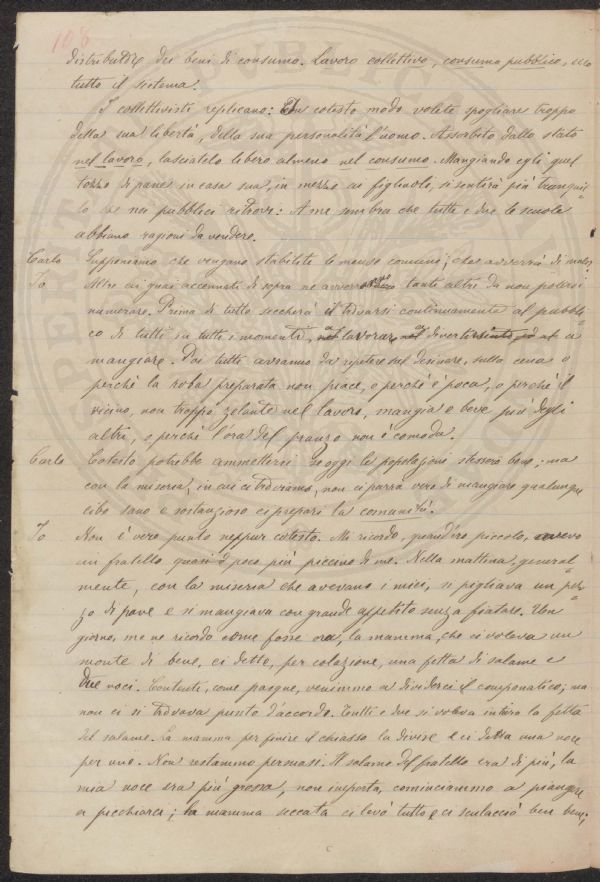 108
distributore dei beni di consumo. Lavoro collettivo, consumo pubblico, ecco
tutto il sistema.
I collettivisti replicano: In cotesto modo volete spogliare troppo
della sua libertà, della sua personalità l'uomo. Assorbito dallo stato
nel lavoro, lasciatelo libero almeno nel consumo. Mangiando egli quel
tozzo di pane in casa sua, in mezzo ai figliuoli, si sentirà più tranquil=
lo che nei pubblici ritrovi: A me sembra che tutte e due le scuole
abbiano ragioni da vendere.
Carlo Supponiamo che vengano stabilite le mense comuni; che avverrà di male?
Io Oltre ai guai accennati di sopra ne avverranno tanti altri da non potersi
numerare. Prima di tutto seccherà il trovarsi continuamente al pubbli=
co di tutti in tutti i momenti, a lavorar, a divertirsi a
mangiare. Poi tutti avranno da ripetere sul desinare, sulla cena o
perchè la roba preparata non piace, o perchè è poca, o perchè il
vicino, non troppo zelante nel lavoro, mangia e beve più degli
altri, o perchè l'ora del pranzo non è comoda.
Carlo Cotesto potrebbe ammettersi se oggi le popolazioni stessero bene; ma
con la miseria, in cui ci troviamo, non ci parrà vero di mangiare qualunque
cibo sano e sostanzioso ci prepari la comunità.
Io Non è vero punto neppur cotesto. Mi ricordo, quand'ero piccolo, avevo
un fratello quasi d poco più piccino di me. Nella mattina, general=
mente, con la miseria che avevano i miei, si pigliava un pez=
zo di pane e si mangiava con grande appetito senza fiatare. Un
giorno, me ne ricordo come fosse ora, la mamma, che ci voleva un
monte di bene, ci dette, per colazione, una fetta di salame e
due noci. Contenti, come pasque, venimmo a dividerci il companatico; ma
non ci si trovava punto d'accordo. Tutti e due si voleva intera la fetta
del salame. La mamma per finire il chiasso la divise e ci dette una noce
per uno. Non restammo persuasi. Il salame del fratello era di più, la
mia noce era più grossa, non importa, cominciammo a piangere
e picchiarci; la mamma seccata ci levò tutto e ci sculacciò ben bene;